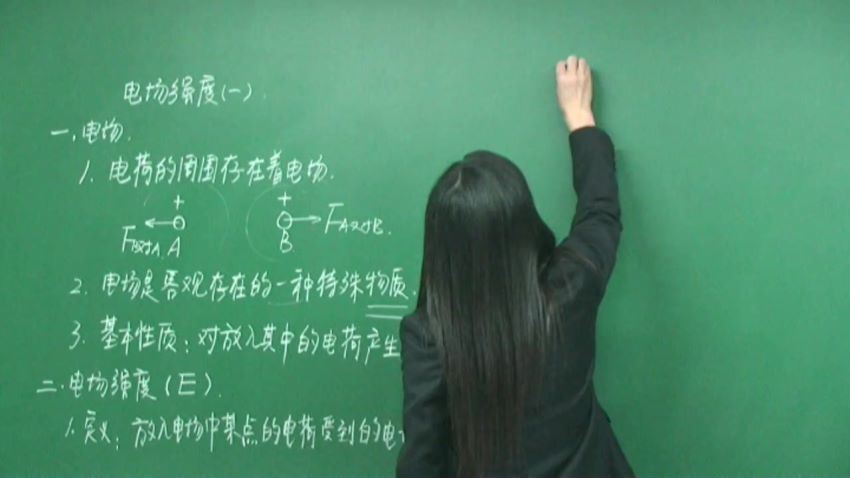 电场强度(一).
一、电场.
1. 电荷的周围存在着电场.
+ +
F B对A A B F A对B.
2. 电场是客观存在的一种特殊物质.
3. 基本性质: 对放入其中的电荷产生
二. 电场强度(E).
1. 定义: 放入电场中某点的电荷受到的电